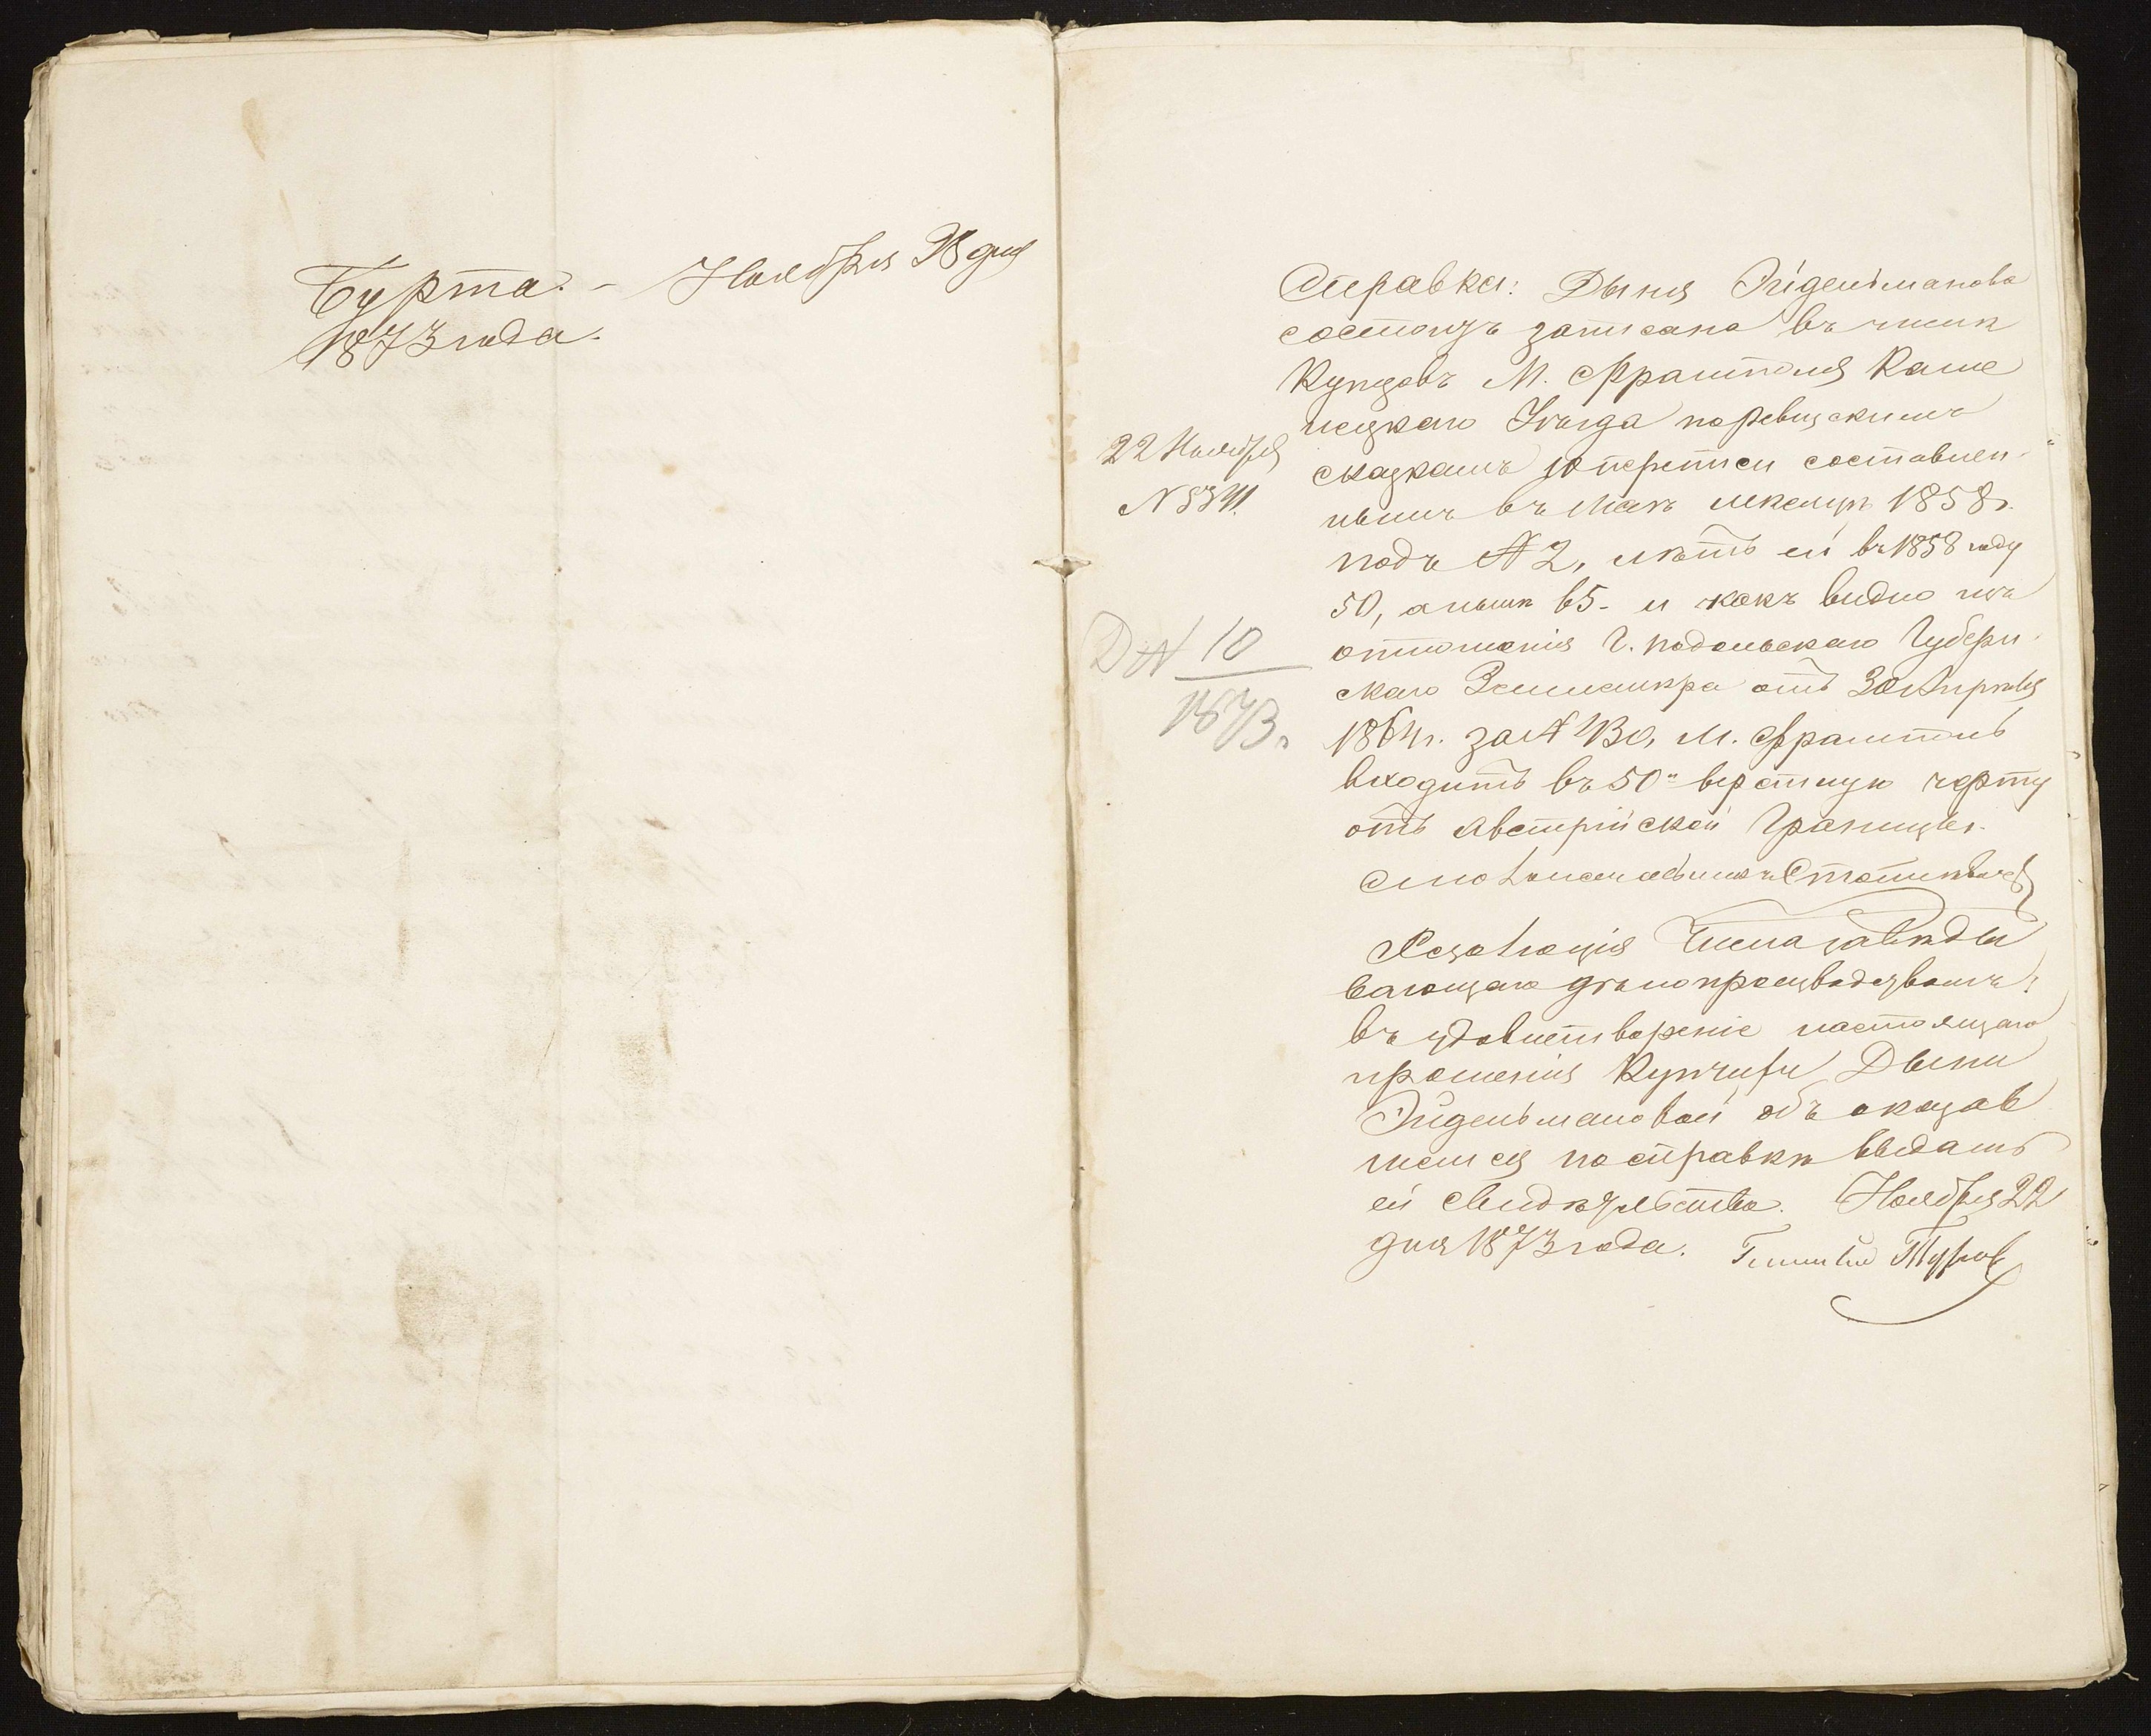 Бурта. - Ноября 28 дня
1873 года.
22 Ноября
N 5341.
Д N 10
1873 г.
Справка: Дыня Эйдельманова
состоитъ записана въ числѣ
Купцовъ М. Фрамполя Каме
нецкаго Уѣзда по ревизскимъ
сказкамъ 10 переписи составлен-
нымъ въ Маѣ мѣсяцѣ 1858 г.
подъ N 2, лѣтъ ей въ 1858 году
50, а нынѣ 65 - и какъ видно изъ
отношенія Г. Подольскаго Губерн-
скаго Землемѣра отъ 30 Апрѣля
1864 г. за N 430, М. Фрамполь
входитъ въ 50ти верстную черту
отъ Австрійской Границы.
Столоначальникъ
Резолюція Члена завѣды
вающаго дѣлопроизводствомъ:
въ удовлетвореніе настоящаго
прошенія Купчихи Дыни
Эйдельмановой объ оказав
шемся по справкѣ выдать
ей свидѣтельство. Ноября 22
дня 1873 года.